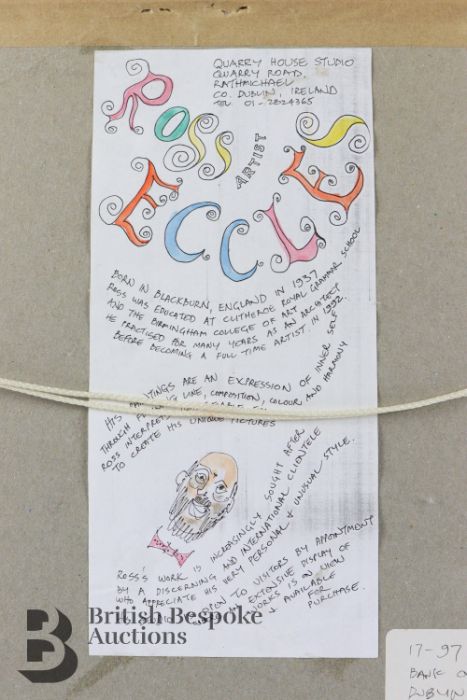 QUARRY HOUSE STUDIO
QUARRY ROAD,
RATHMICHAEL
CO. DUBLIN, IRELAND
TEL 01-2824365
ROSS
ARTIST
ECCLES
BORN IN BLACKBURN, ENGLAND IN 1937
ROSS WAS EDUCATED AT CLITHEROE ROYAL GRAMMAR SCHOOL
AND THE BIRMINGHAM COLLEGE OF ART
HE PRACTISED FOR MANY YEARS AS AN ARCHITECT
BEFORE BECOMING A FULL TIME ARTIST IN 1992.
HIS PAINTINGS ARE AN EXPRESSION OF INNER SELF
THROUGH LINE, COMPOSITION, COLOUR AND HARMONY
ROSS INTERPRETS
TO CREATE HIS UNIQUE PICTURES
ROSS'S WORK IS INCREASINGLY SOUGHT AFTER
BY A DISCERNING AND INTERNATIONAL CLIENTELE
WHO APPRECIATE HIS VERY PERSONAL & UNUSUAL STYLE.
OPEN TO VISITORS BY APPOINTMENT
AN EXTENSIVE DISPLAY OF
WORKS IS ON VIEW
& AVAILABLE
FOR
PURCHASE.
B
British Bespoke
Auctions
17-97
BANK O
DUBLIN